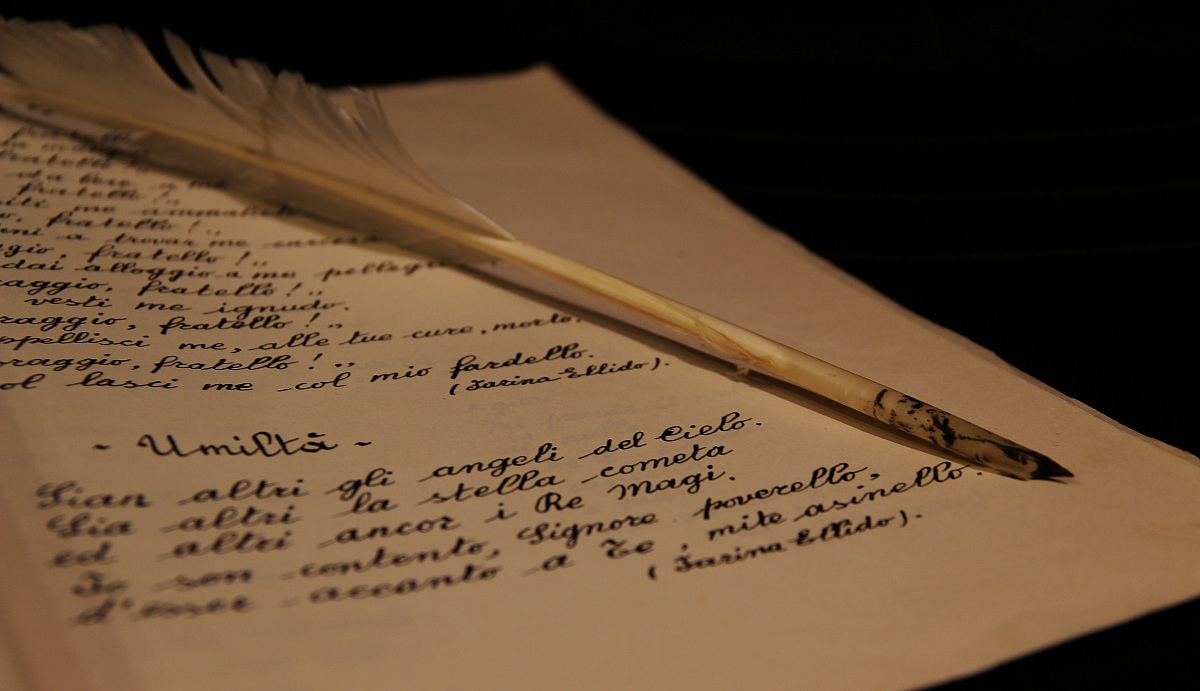 fratello
fratello!
a me
fratello!
me ammalato
fratello!..
a trovar me carcera
fratello!..
dai alloggio a me pelleg
fratello!..
vesti me ignudo.
fratello!..
me, alle tue cure, morto,
fratello!..
lasci me col mio fardello.
(Farina Ellido).
~ Umiltà ~
Sian altri gli angeli del Cielo.
Sia altri la stella cometa
ed altri ancor i Re Magi.
Io son contento, Signore poverello,
d'esser accanto a Te, mite asinello.
(Farina Ellido).